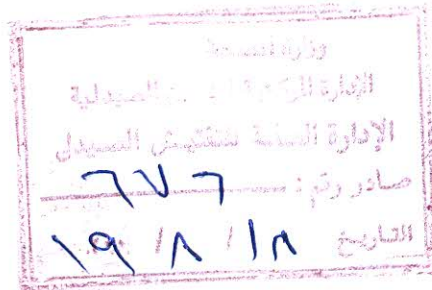 وزارة الصحة
الإدارة المركزية الصيدلية
الإدارة العامة للتفتيش الصيدلي
صادر رقم : ٦٧٦
التاريخ ١٨ / ٨ / ١٩